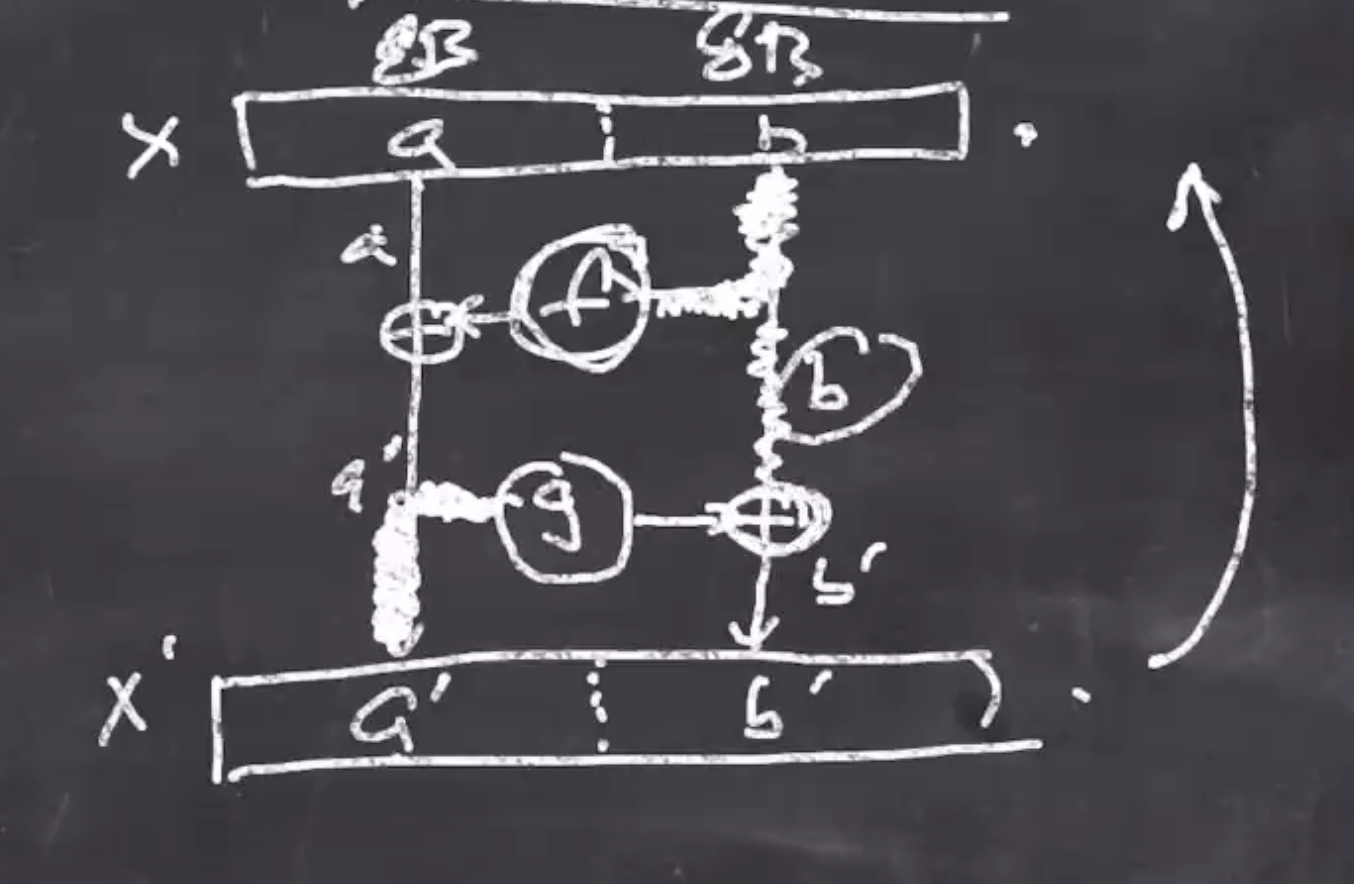 8B 8B
X a b
a
f
b
a'
g
b'
X' a' b'